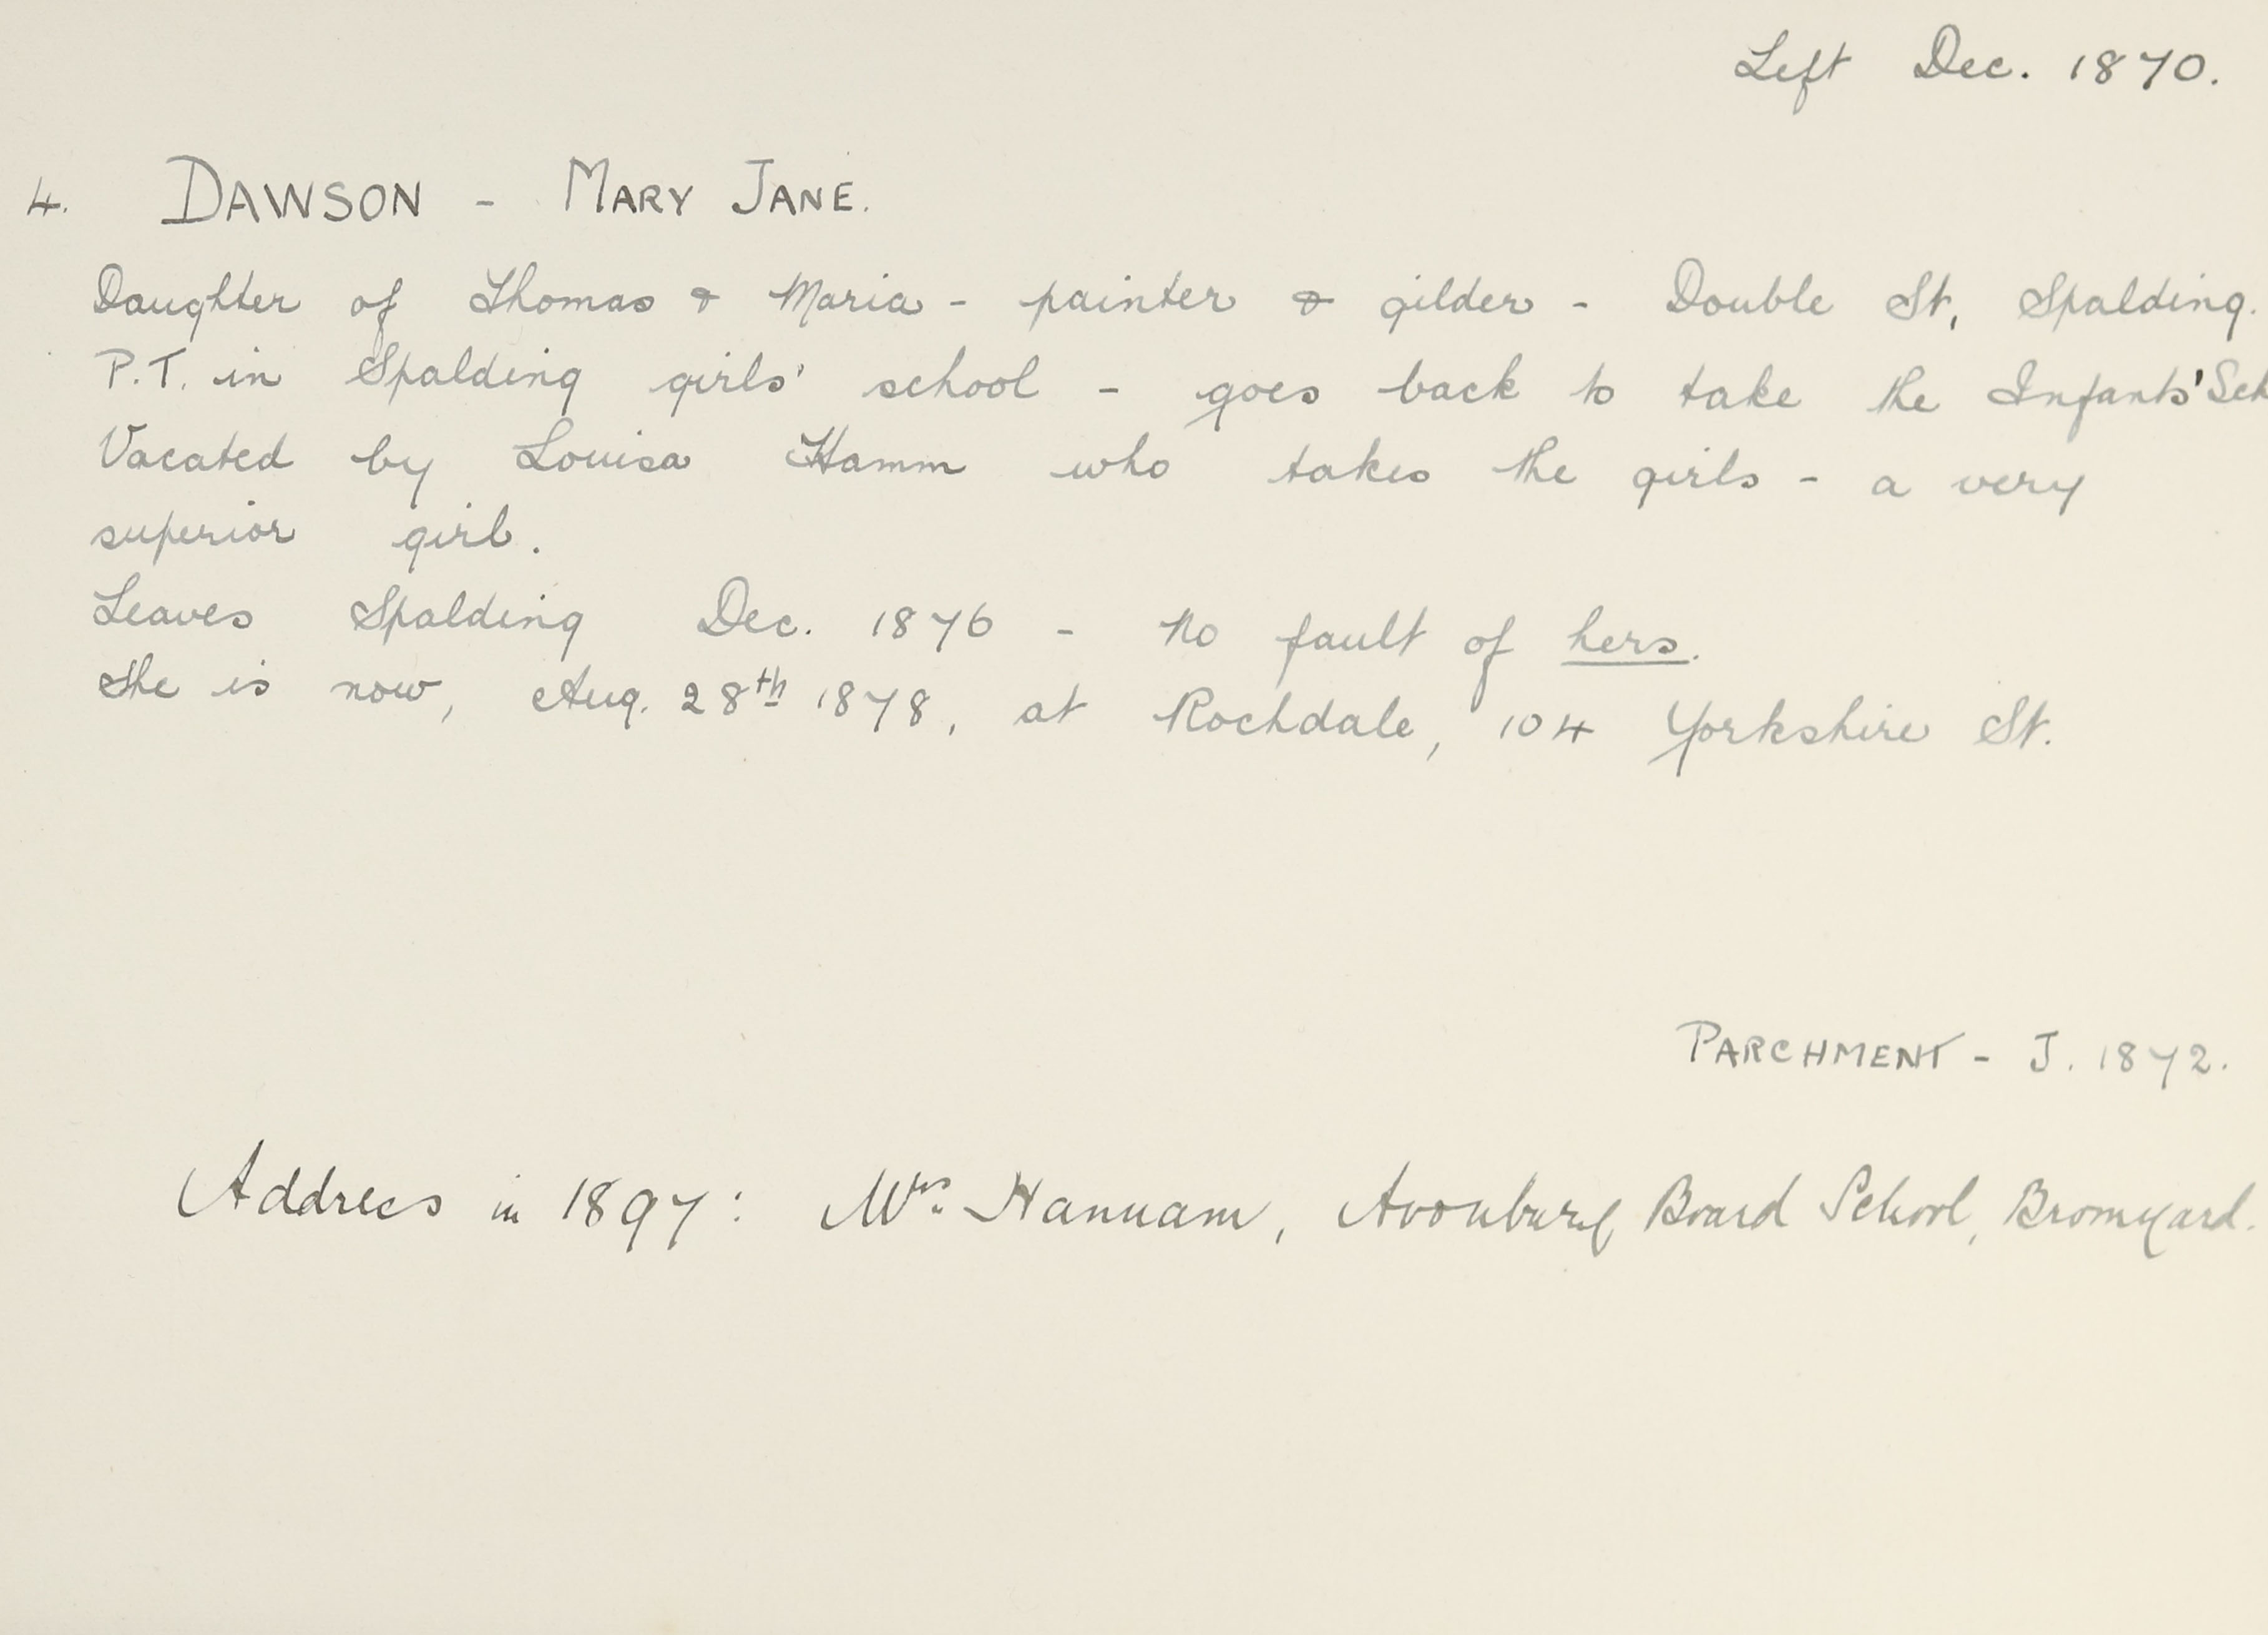 Left Dec. 1870.
4. DAWSON - MARY JANE.
Daughter of Thomas & Maria - painter & gilder - Double St, Spalding.
P.T. in Spalding girls' school - goes back to take the Infants' Sch
Vacated by Louisa Hamm who takes the girls - a very
superior girl.
Leaves Spalding Dec. 1876 - no fault of hers.
She is now, Aug. 28th 1878, at Rochdale, 104 Yorkshire St.
PARCHMENT - J. 1872.
Address in 1897: Mrs. Hannam, Avonbury Board School, Bromyard.